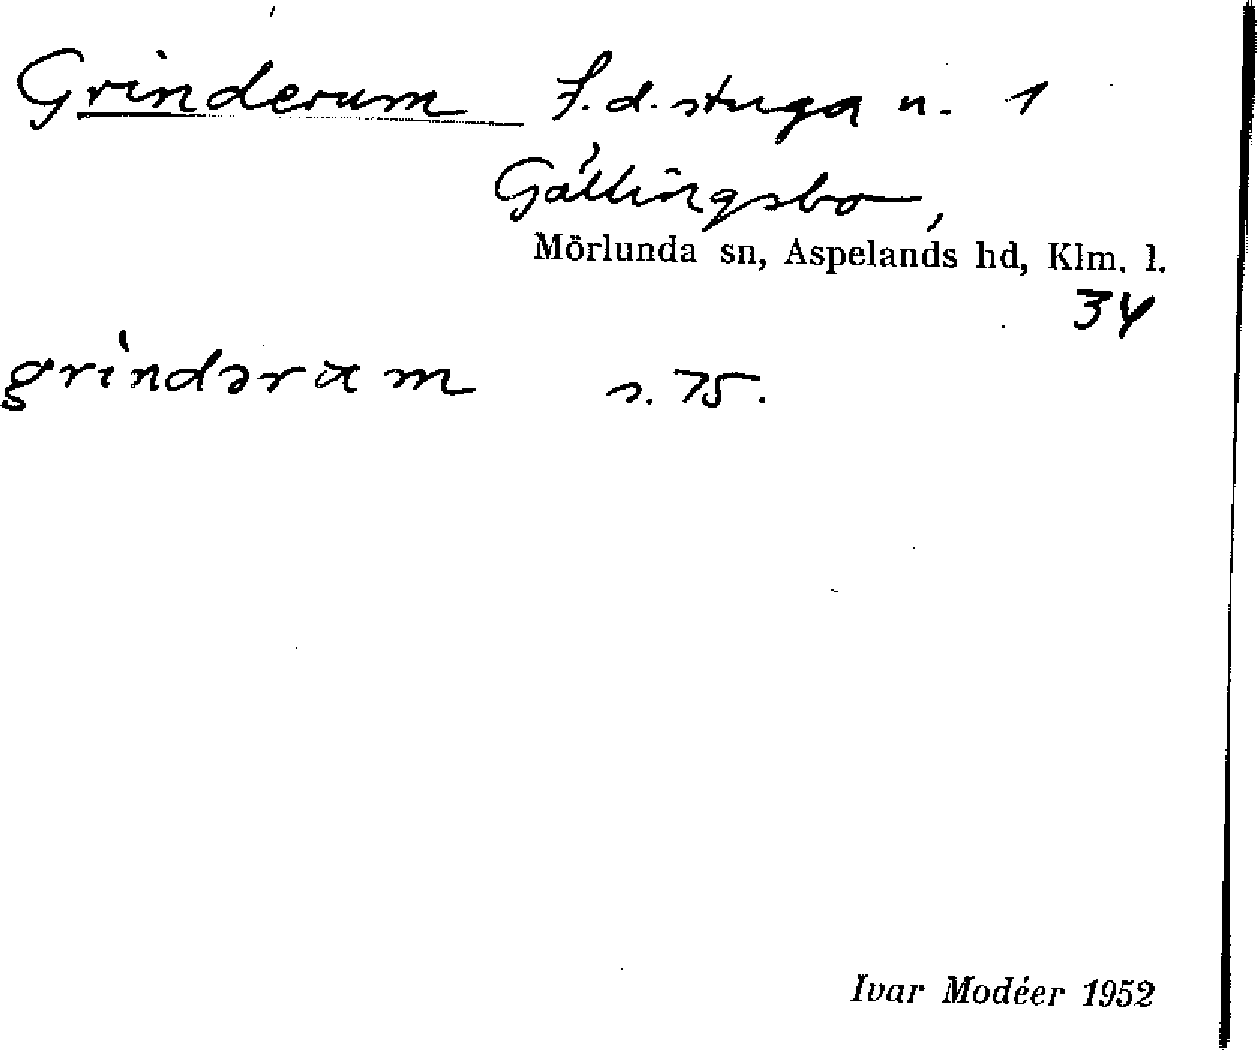 Grinderum F.d. stuga u. 1
Gällingsbo,
Mörlunda sn, Aspelands hd, Klm. l.
34
grindəram s. 75.
Ivar Modéer 1952